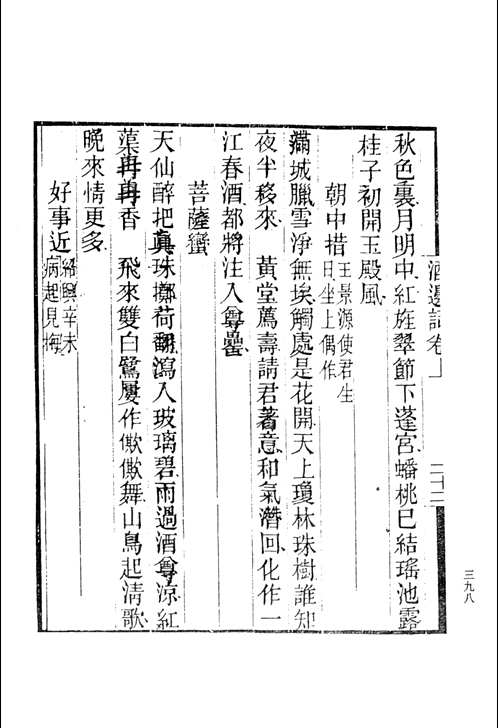 酒邊詞卷上
二十二
三九八
秋色裏月明中紅旌翠節下蓬宮蟠桃已結瑤池露
桂子初開玉殿風
朝中措王景源使君生日坐上偶作
滿城臘雪淨無埃觸處是花開天上瓊林珠樹誰知
夜半移來　黃堂薦壽請君著意和氣潛回化作一
江春酒都將注入尊罍
菩薩蠻
天仙醉把真珠擲荷翻瀉入玻璃碧雨過酒尊涼紅
蕖冉冉香　飛來雙白鷺屢作僛僛舞山鳥起清歌
晚來情更多
好事近紹興辛未病起見梅